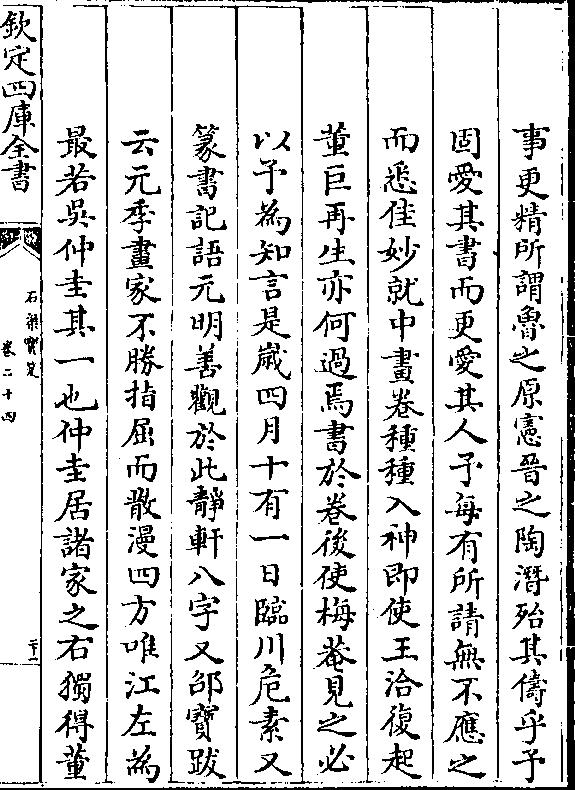 事更精所謂魯之原憲晉之陶潛殆其儔乎予
固愛其書而更愛其人予每有所請無不應之
而悉佳妙就中畫卷種種入神即使王洽復起
董巨再生亦何過焉書於卷後使梅菴見之必
以予為知言是嵗四月十有一日臨川危素又
篆書記語元明善觀於此靜軒八字又邵寶跋
云元季畫家不勝指屈而散漫四方唯江左為
最若吳仲圭其一也仲圭居諸家之右獨得董
欽定四庫全書
石渠寳笈
卷二十四